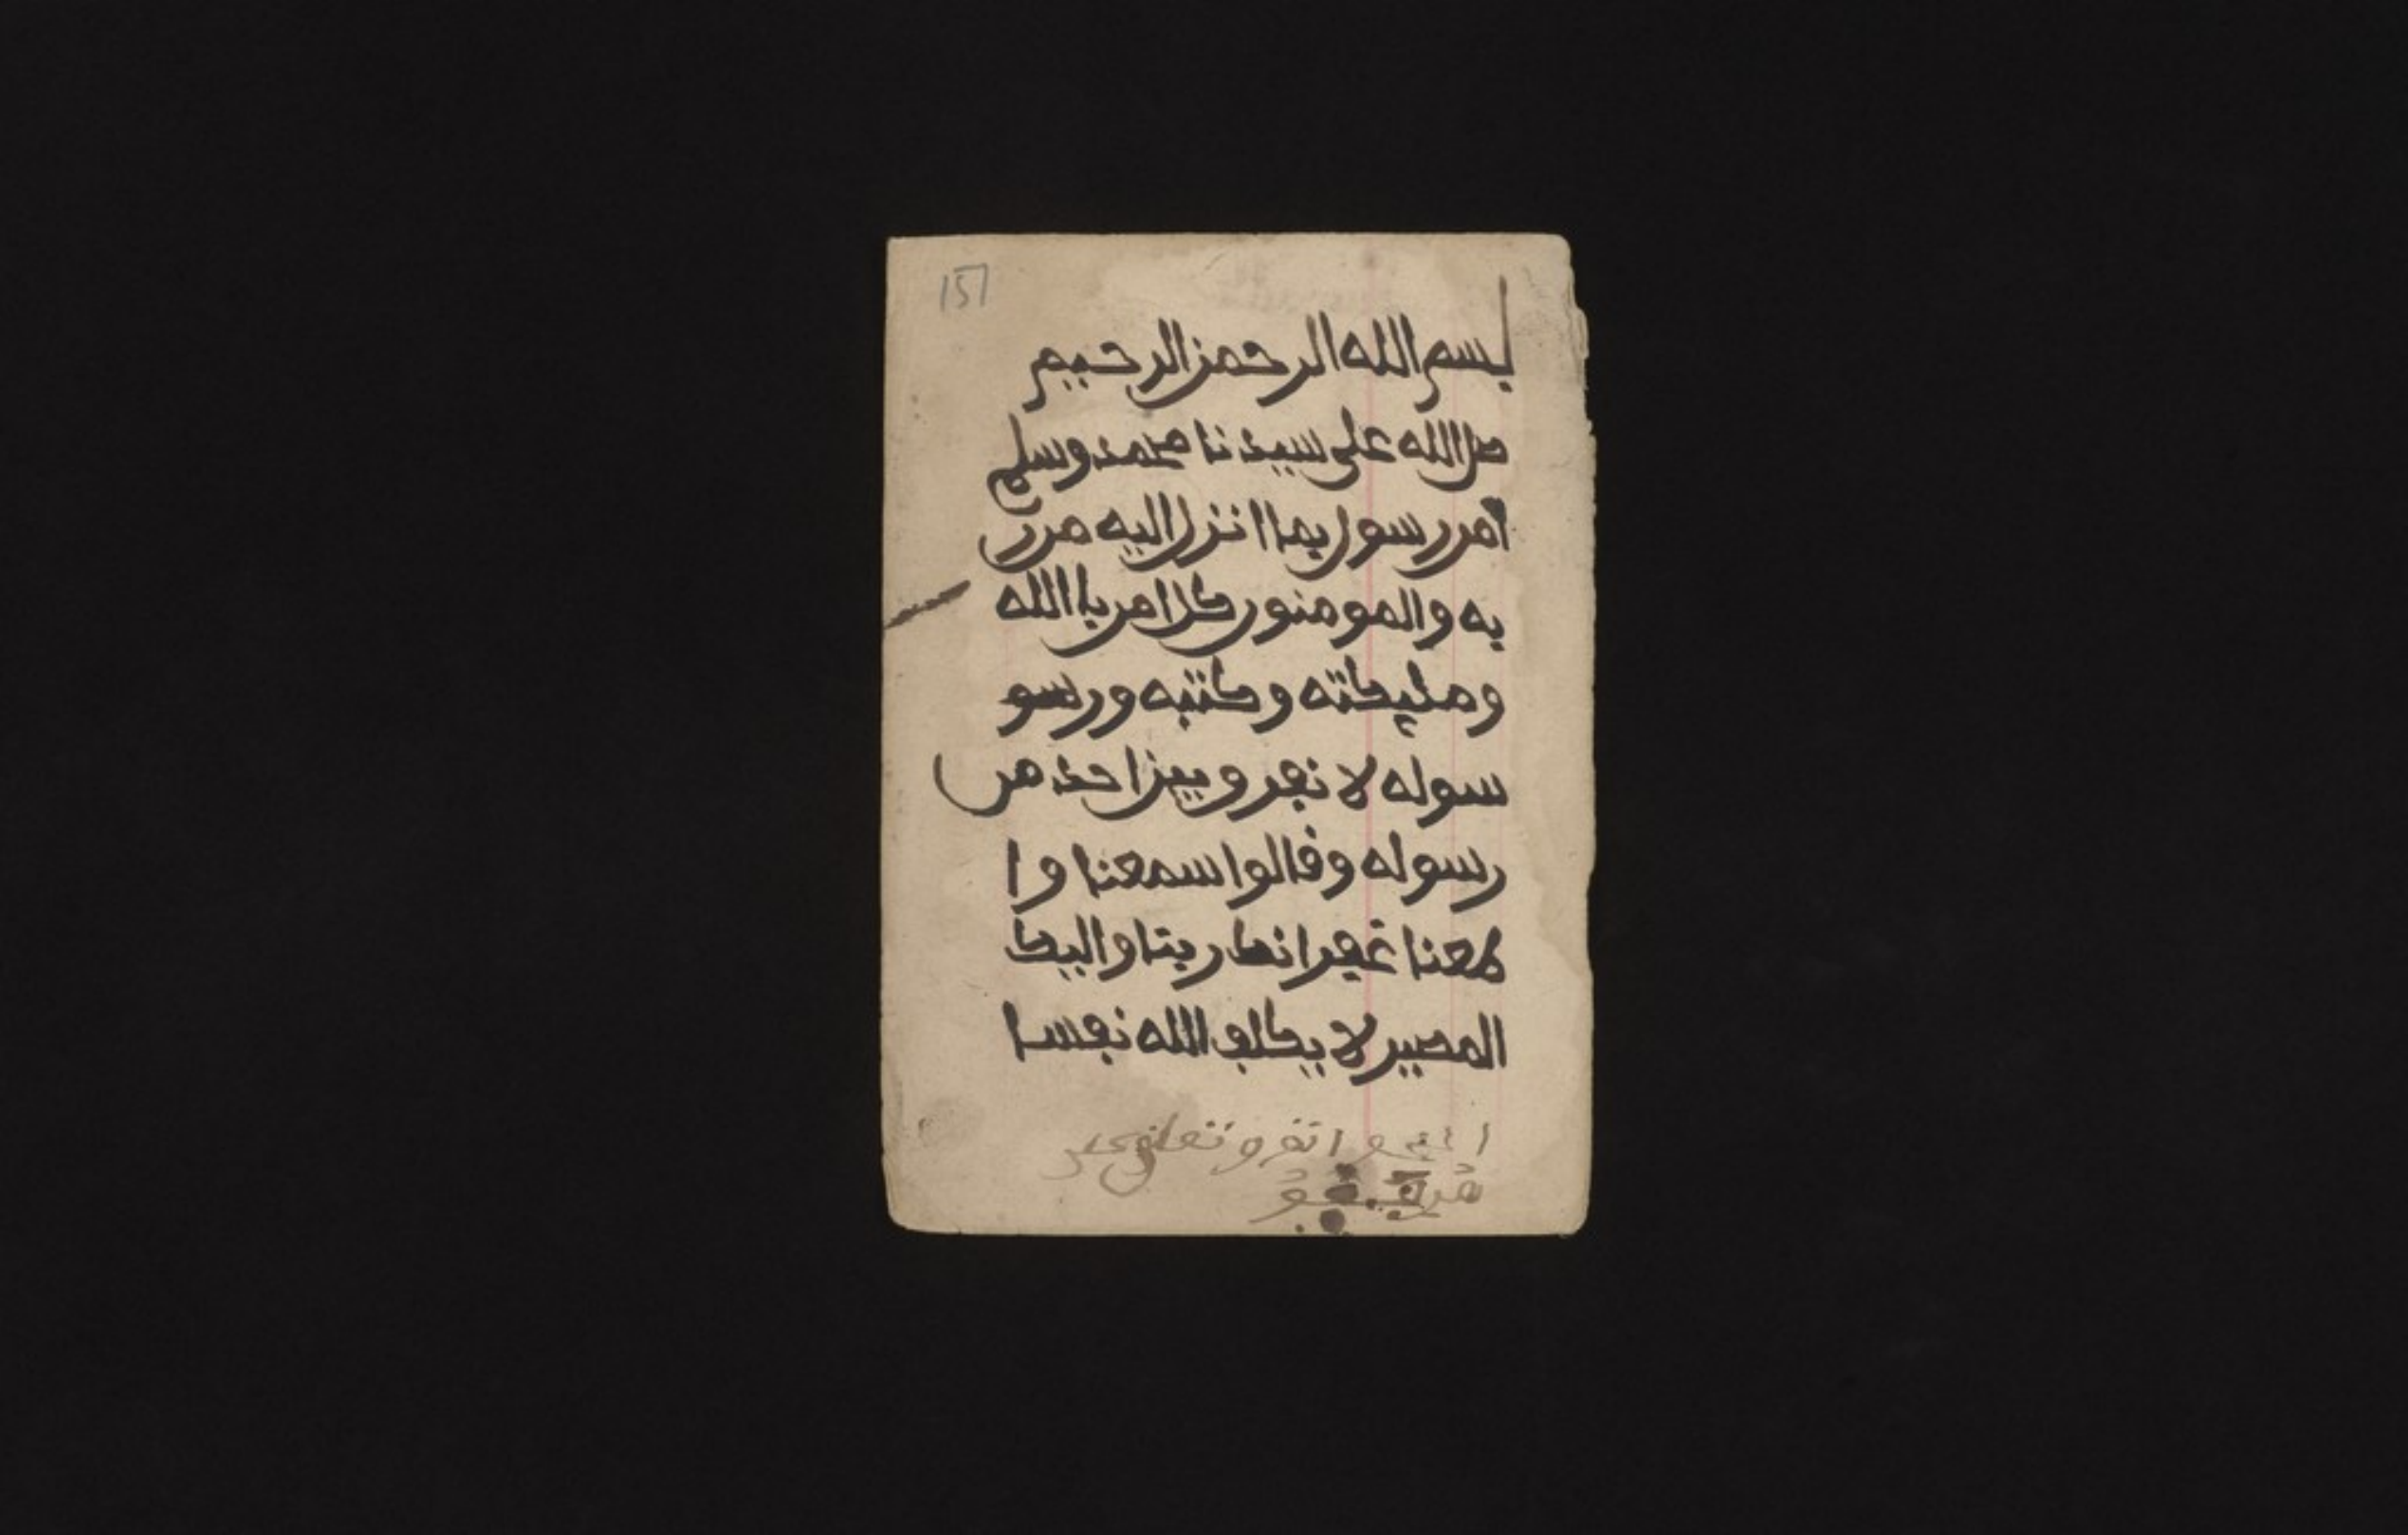 151
بسم الله الرحمن الرحيم
صل الله على سيدنا محمد وسلم
امن رسول بما انزل اليه من ر
به والمومنون كل امن باالله
ومليكته وكتبه ورسو
سوله لا نفرو بين احد من
رسوله وقالوا سمعنا وا
طعنا غفرانك ربنا واليك
المصير لا يكلف الله نفسا